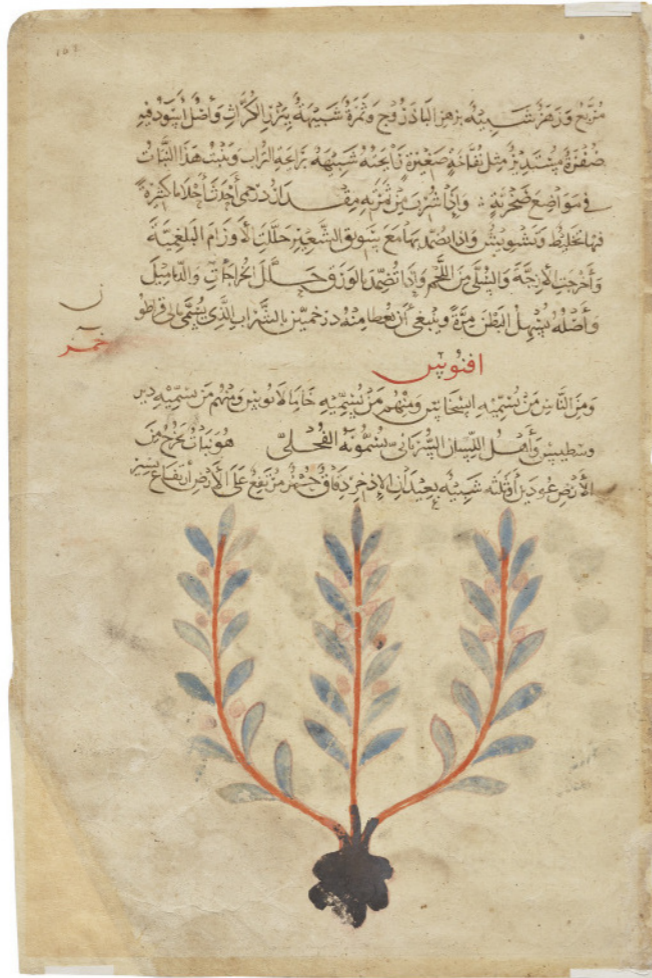 مربع وزهر شبيه بزهر الباذروج وثمرة شبيهة ببزر الكراث وأصل أسود فيه
صفرة مستدير مثل تفاحة صغيرة رائحته شبيهة برائحة الشراب وينبت هذا النبات
في مواضع صخرية وإذا شرب من ثمرته مقدار درخمى أحدث أحلاما كثيرة
فيها تخليط وتشويش وإذا تضمد بها مع سويق الشعير حللت الأورام البلغمية
وأخرجت الأزجة والسلى من اللحم وإذا تضمد بالورق حلل الخراجات والدماميل
وأصله يسهل البطن مرة وينبغي أن يعطا منه درخمين بالشراب الذي يسمى مالي قراطو
خمر
افنوس
ومن الناس من يسميه اسخاس ومنهم من يسميه خامالانوس ومنهم من يسميه
وأهل اللسان السرياني يسمونه الفحلى هو نبات يخرج من
الأرض عودين أو ثلثه شبيه بعيدان الإذخر دقاق حمر مرتفع على الأرض ارتفاع يسير